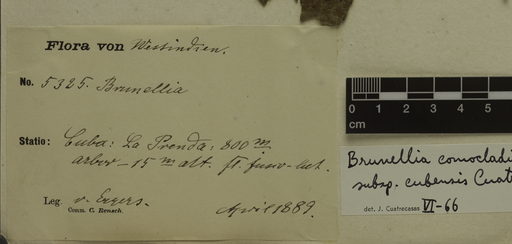 Flora von Westindien.
No. 5325. Brunellia
Statio: Cuba: La Prenda, 800 m
arbor – 15 m alt. fl. fusco-lut.
Leg. v. Eggers.
Comm. C. Rensch.
April 1889.
0 1 2 3 4 5
cm
Brunellia comocladi
subsp. cubensis Cuat
det. J. Cuatrecasas VI-66